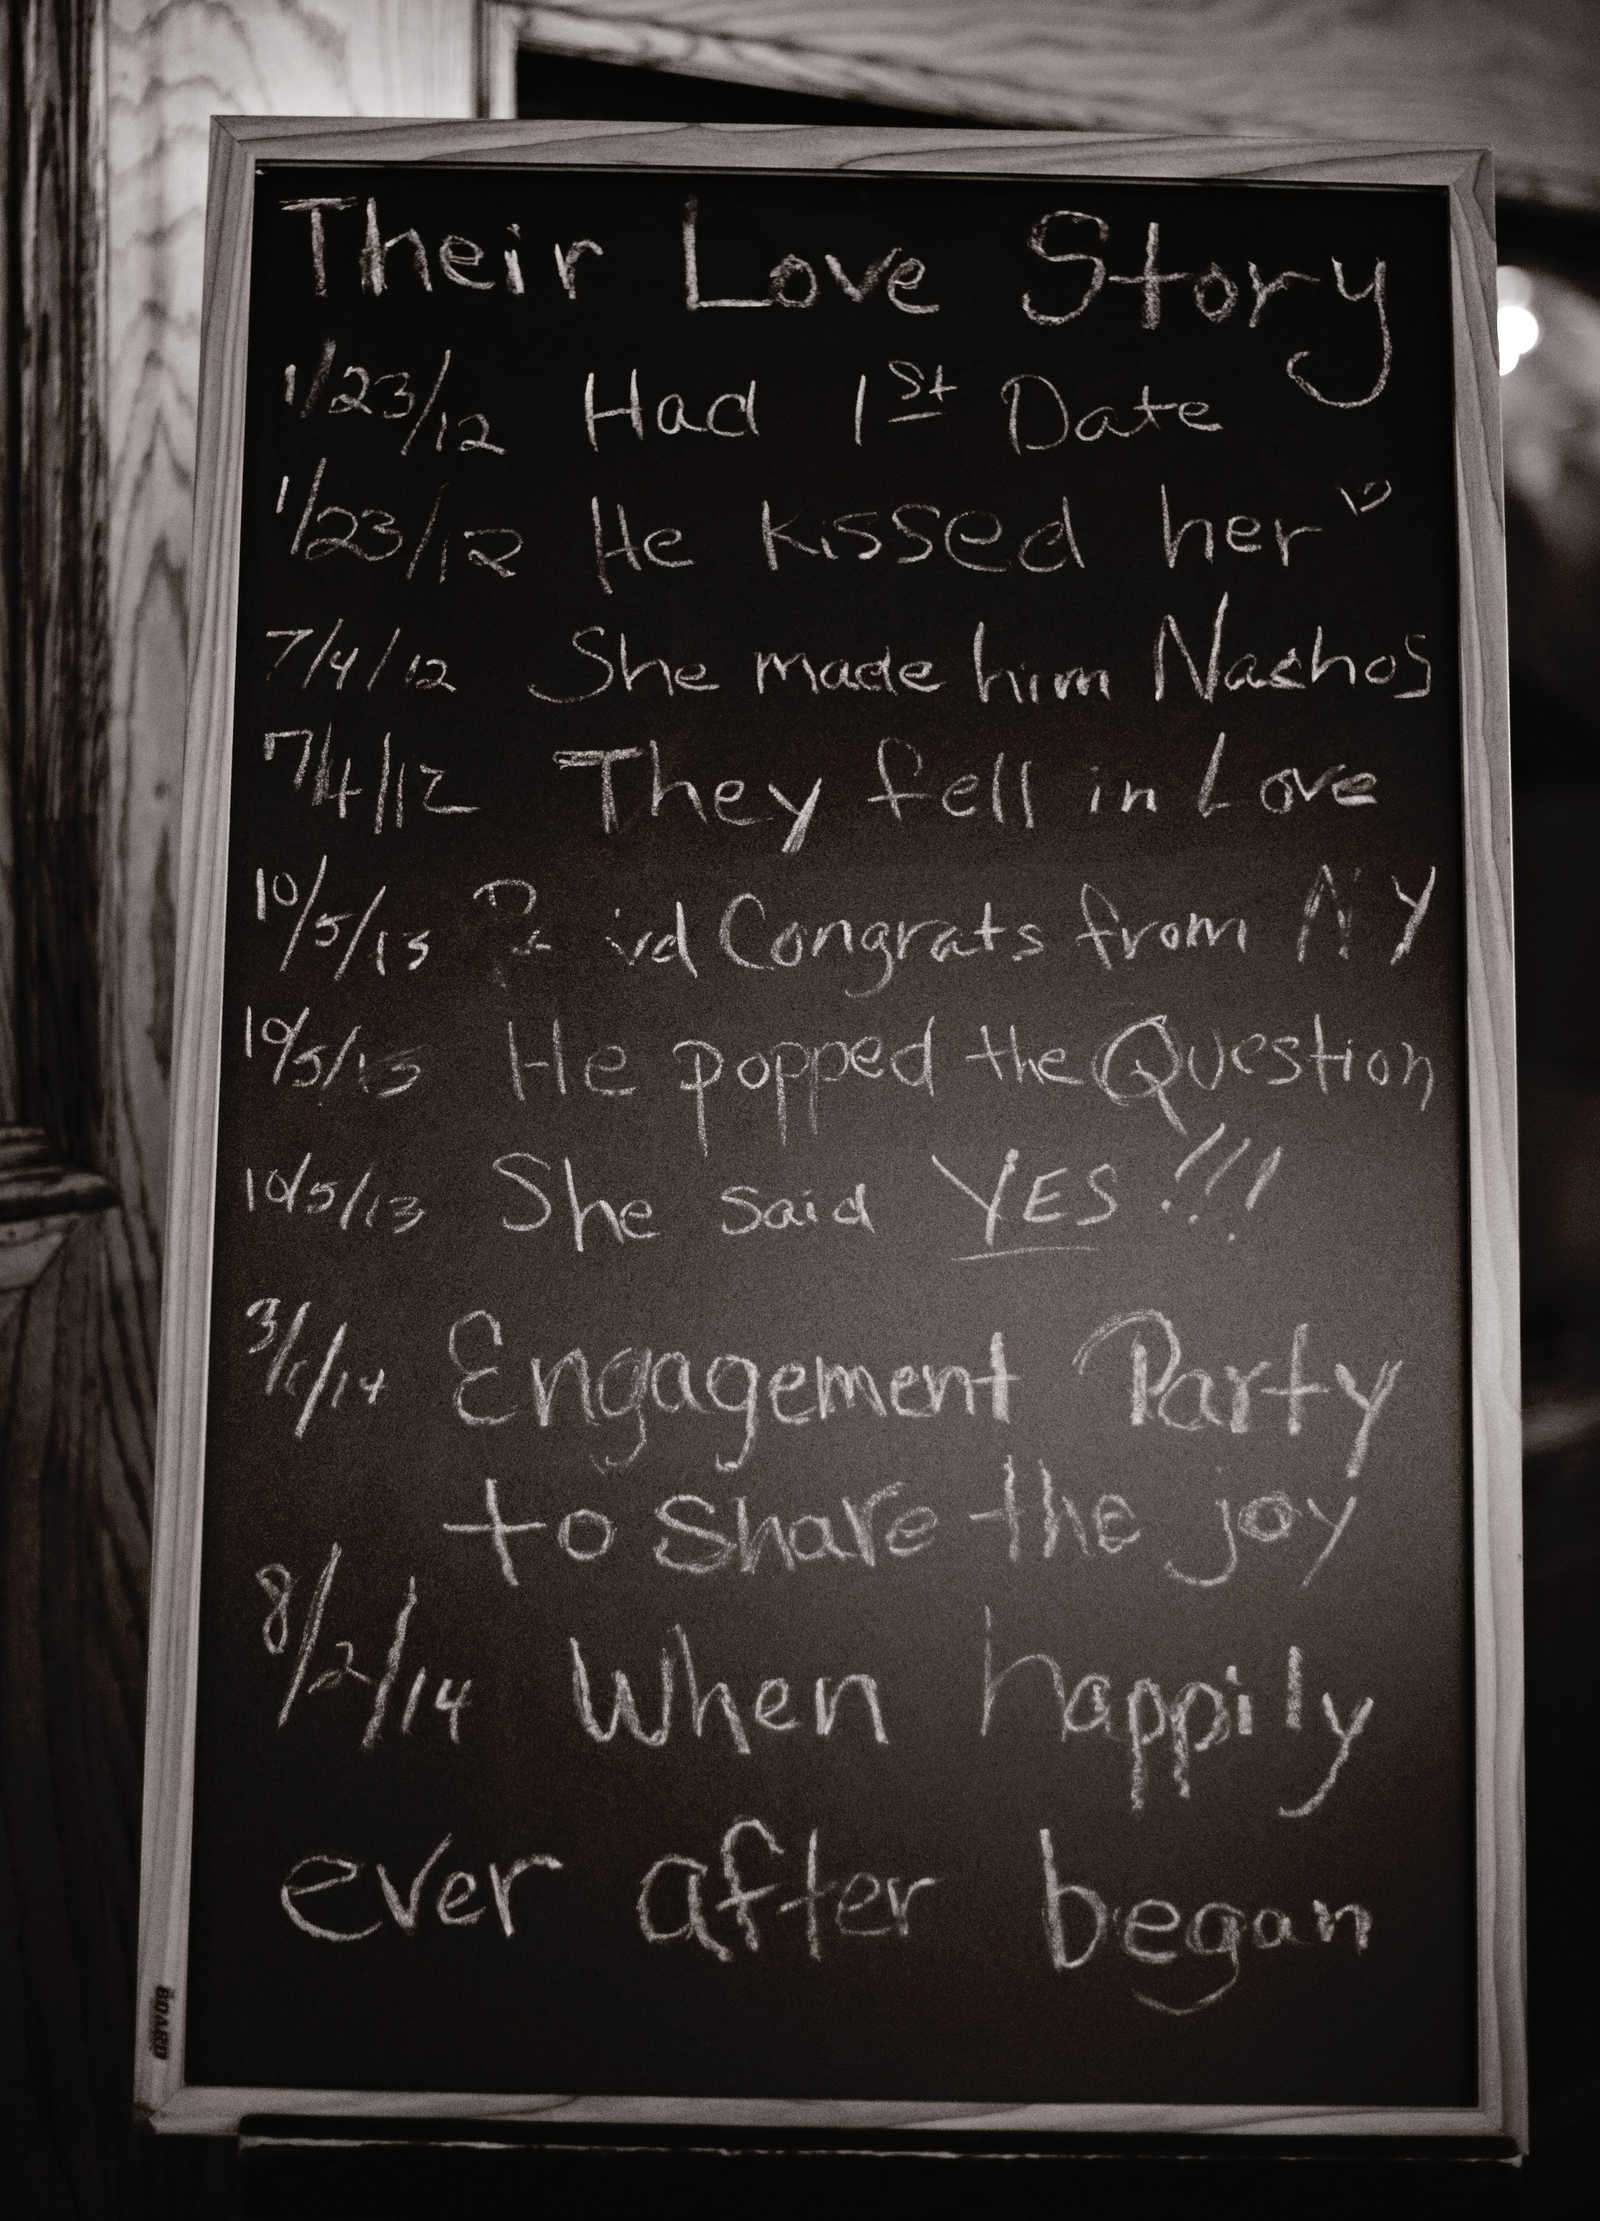 Their Love Story
1/23/12 Had 1st Date
1/23/12 He kissed her ♡
7/4/12 She made him Nachos
7/4/12 They fell in Love
10/5/13 Congrats from NY
10/5/13 He popped the Question
10/5/13 She said YES!!!
3/1/14 Engagement Party
to share the joy
8/2/14 When happily
ever after began
BOARD